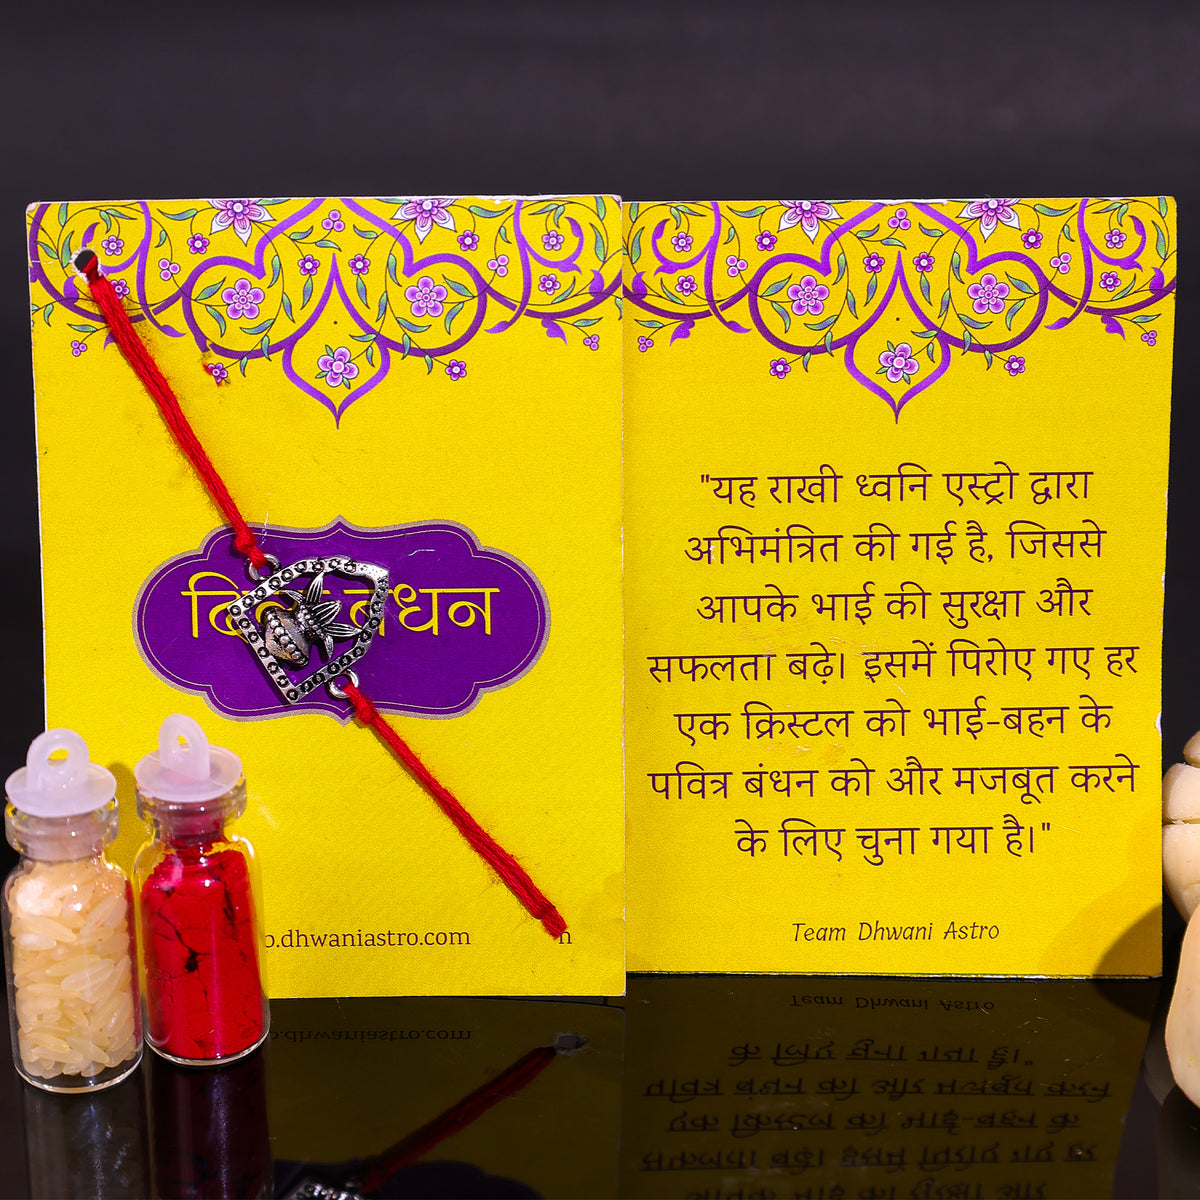 बंधन
.dhwaniastro.com
"यह राखी ध्वनि एस्ट्रो द्वारा
अभिमंत्रित की गई है, जिससे
आपके भाई की सुरक्षा और
सफलता बढ़े। इसमें पिरोए गए हर
एक क्रिस्टल को भाई-बहन के
पवित्र बंधन को और मजबूत करने
के लिए चुना गया है।"
Team Dhwani Astro